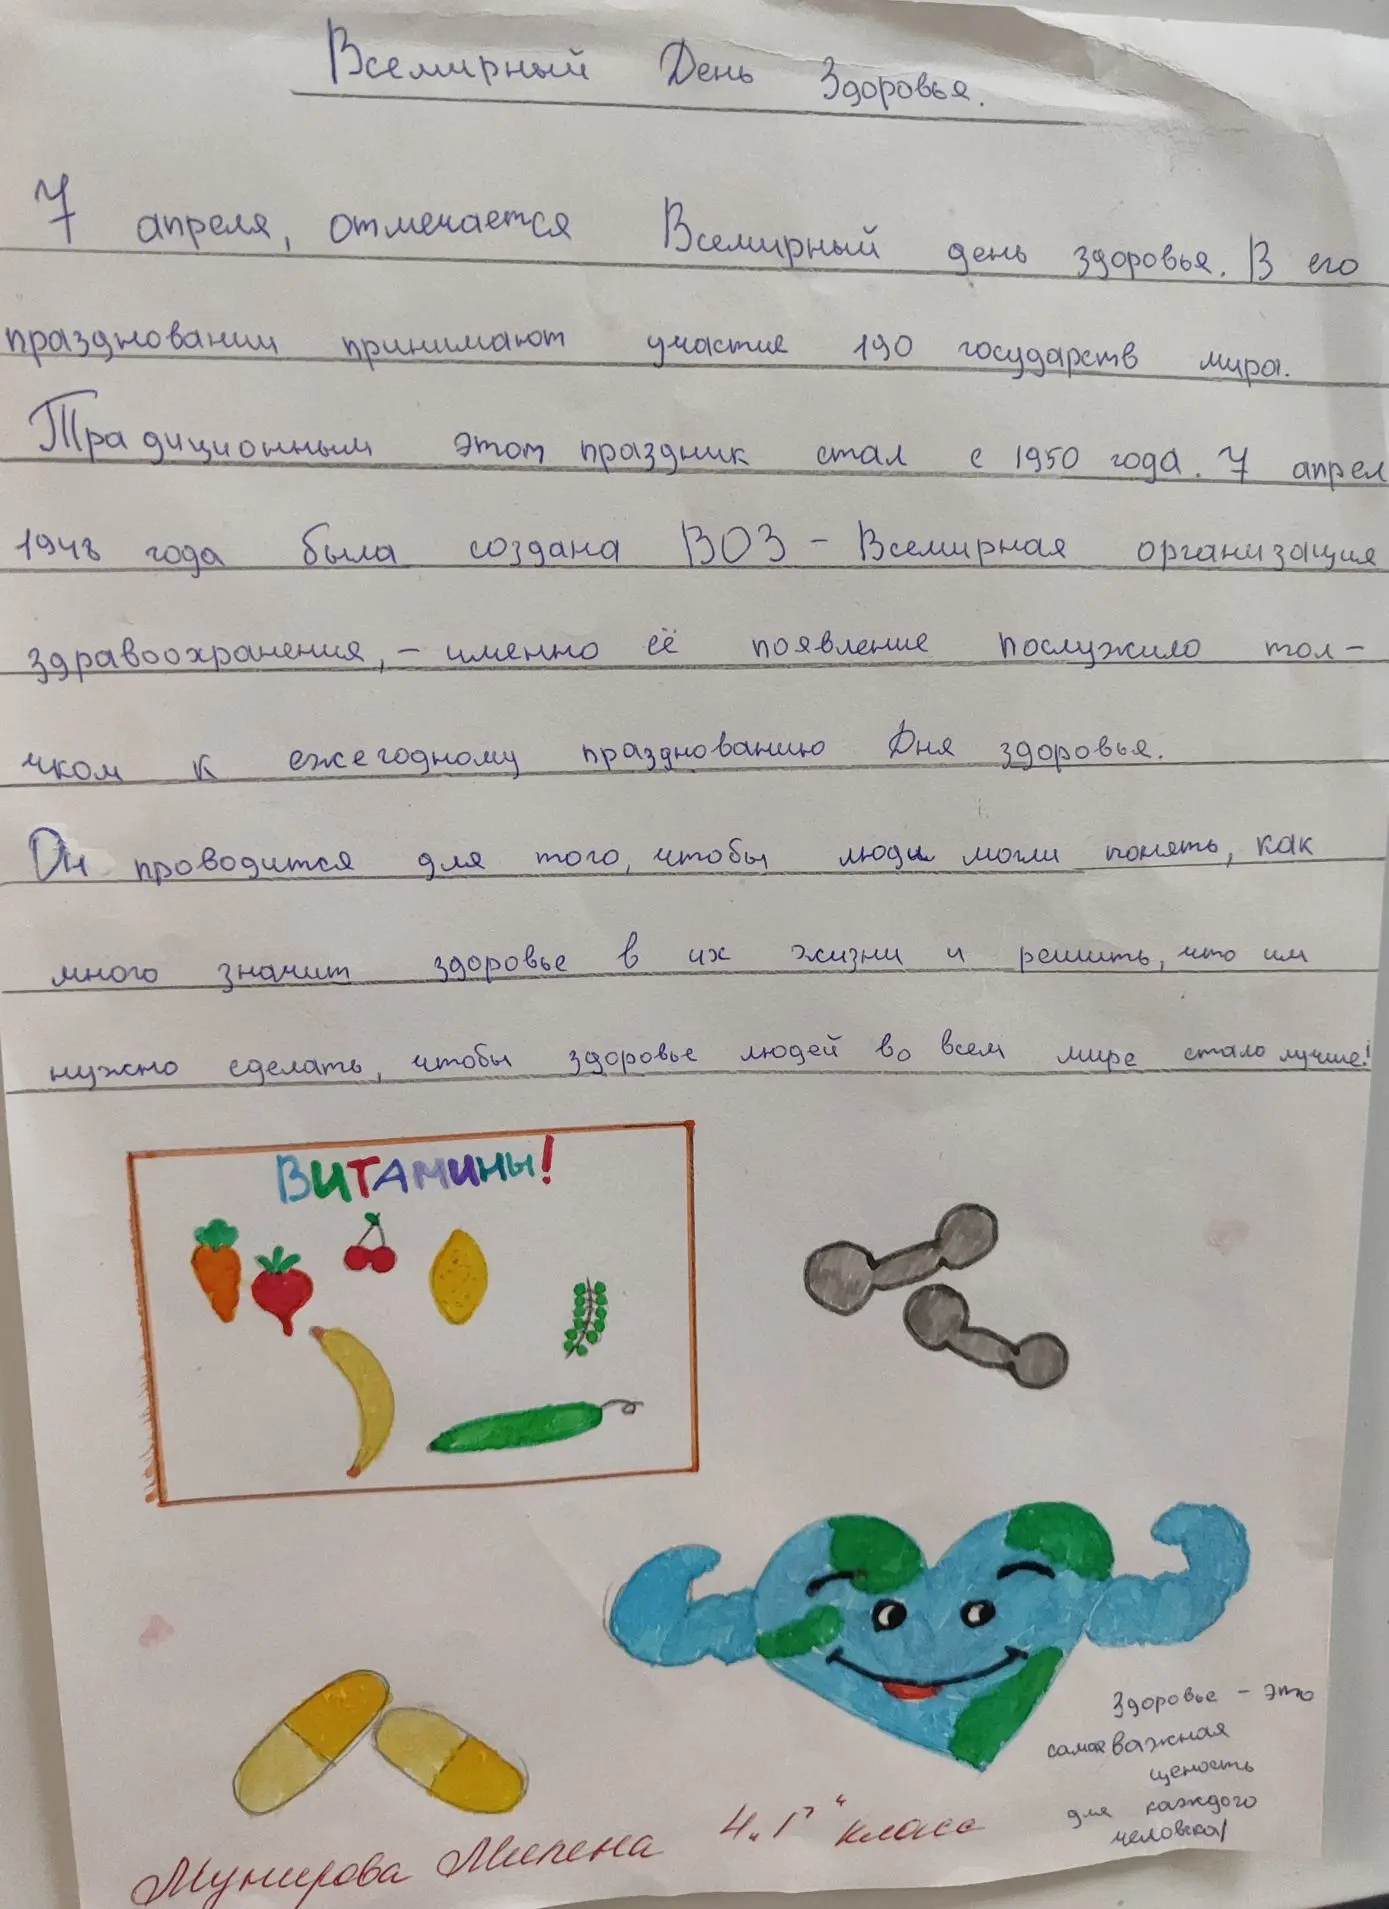 Всемирный День Здоровья.
7 апреля, отмечается Всемирный день здоровья. В его
праздновании принимают участие 190 государств мира.
Традиционным этот праздник стал с 1950 года. 7 апрел
1948 года была создана ВОЗ - Всемирная организация
здравоохранения, - именно её появление послужило тол-
чком к ежегодному празднованию Дня здоровья.
Он проводится для того, чтобы люди могли понять, как
много значит здоровье в их жизни и решить, что им
нужно сделать, чтобы здоровье людей во всем мире стало лучше!
ВИТАМИНЫ!
Здоровье - это
самая важная
ценость
для каждого
человека!
Мунирова Милена 4 „Г“ класс